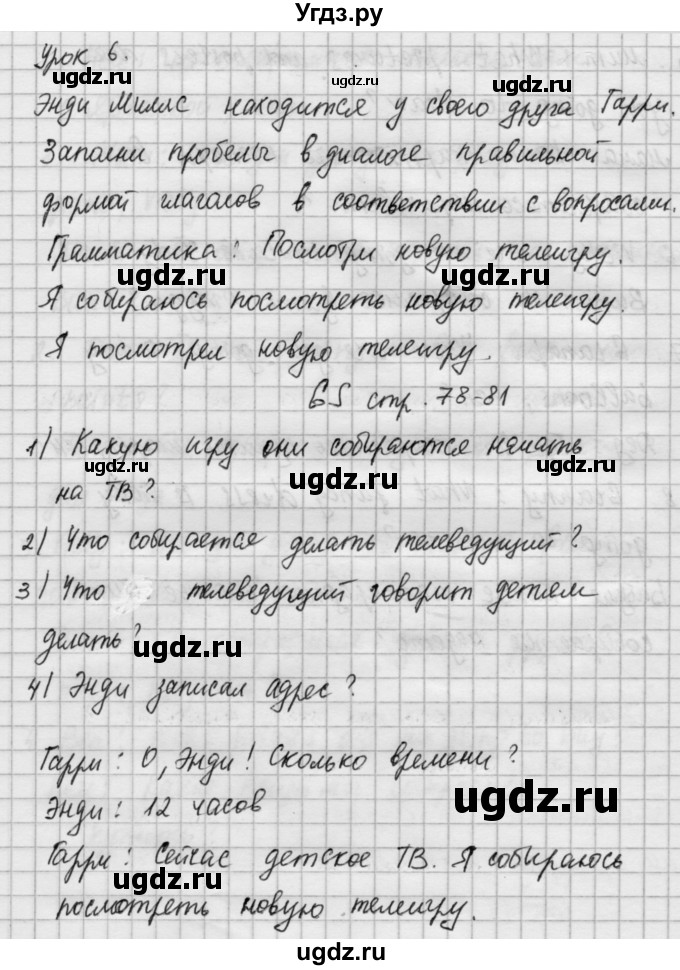 Угдз.ру
Урок 6.
Энди Миллс находится у своего друга Гарри.
Заполни пробелы в диалоге правильной
формой глаголов в соответствии с вопросами.
Грамматика: Посмотри новую телеигру.
Я собираюсь посмотреть новую телеигру.
Я посмотрел новую телеигру.
GS стр. 78-81
1) Какую игру они собираются начать
на ТВ?
2) Что собирается делать телеведущий?
3) Что телеведущий говорит детям
делать?
4) Энди записал адрес?
Гарри: О, Энди! Сколько времени?
Энди: 12 часов
Гарри: Сейчас детское ТВ. Я собираюсь
посмотреть новую телеигру.
ugdz.ru
ugdz.ru
ugdz.ru
ugdz.ru
ugdz.ru
ugdz.ru
ugdz.ru
ugdz.ru
ugdz.ru
ugdz.ru
ugdz.ru
ugdz.ru